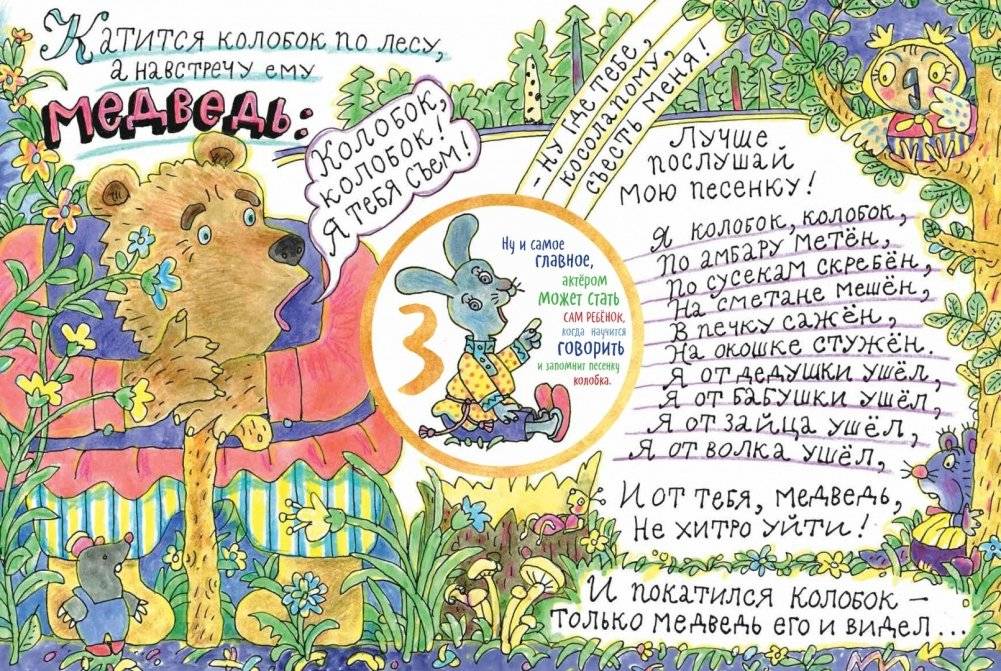 Катится колобок по лесу,
а навстречу ему
медведь:
Колобок,
колобок!
Я тебя съем!
- Ну где тебе,
косолапому,
съесть меня!
Лучше
послушай
мою песенку!
Я колобок, колобок,
По амбару метён,
По сусекам скребён,
На сметане мешён,
В печку сажён,
На окошке стужён.
Я от дедушки ушёл,
Я от бабушки ушёл,
Я от зайца ушёл,
Я от волка ушёл,
И от тебя, медведь,
Не хитро уйти!
И покатился колобок –
только медведь его и видел...
3
Ну и самое
главное,
актёром
может стать
сам ребёнок,
когда научится
говорить
и запомнит песенку
колобка.